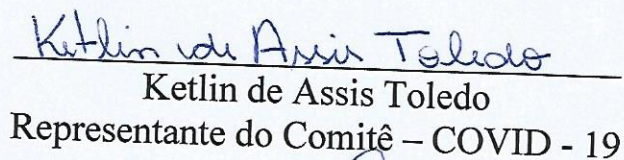 Ketlin de Assis Toledo
Ketlin de Assis Toledo
Representante do Comitê – COVID - 19